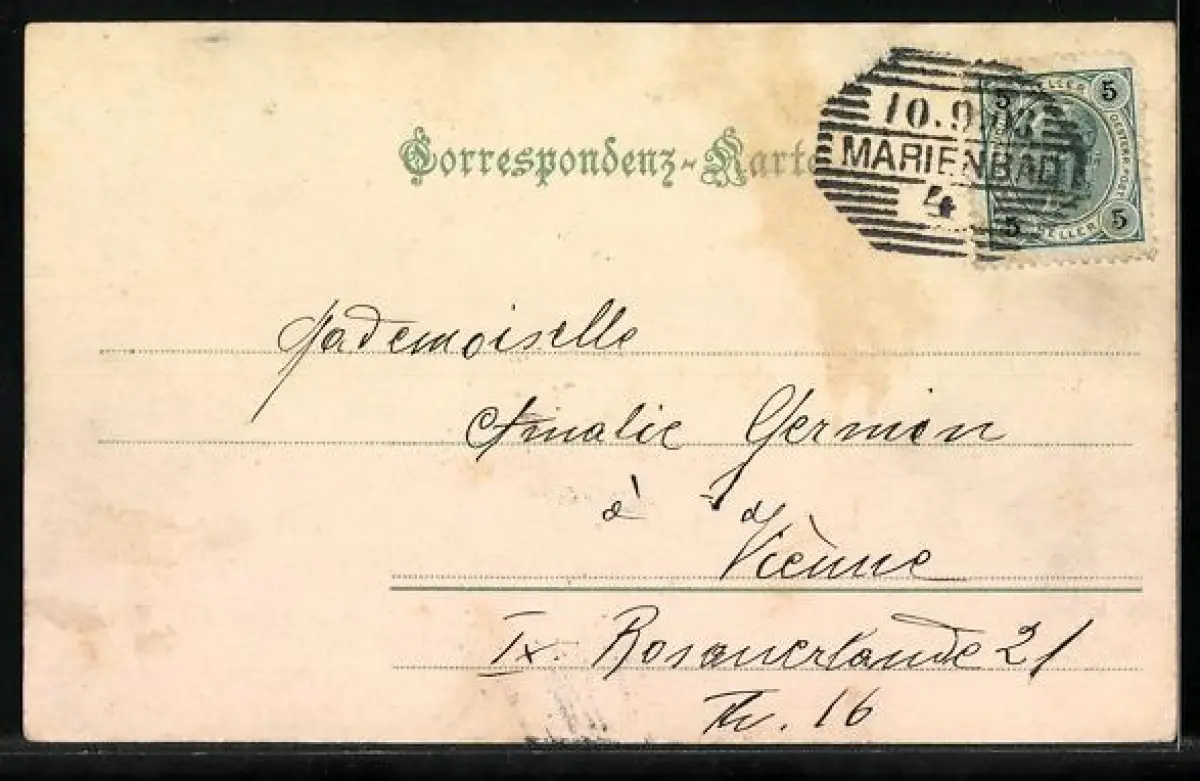 Correspondenz-Karte
10.9.03
MARIENBAD
4
5 HELLER 5
5 HELLER 5
Mademoiselle
Amalie Germen
à
Vienne
IX. Rosauerlande 21
Th. 16